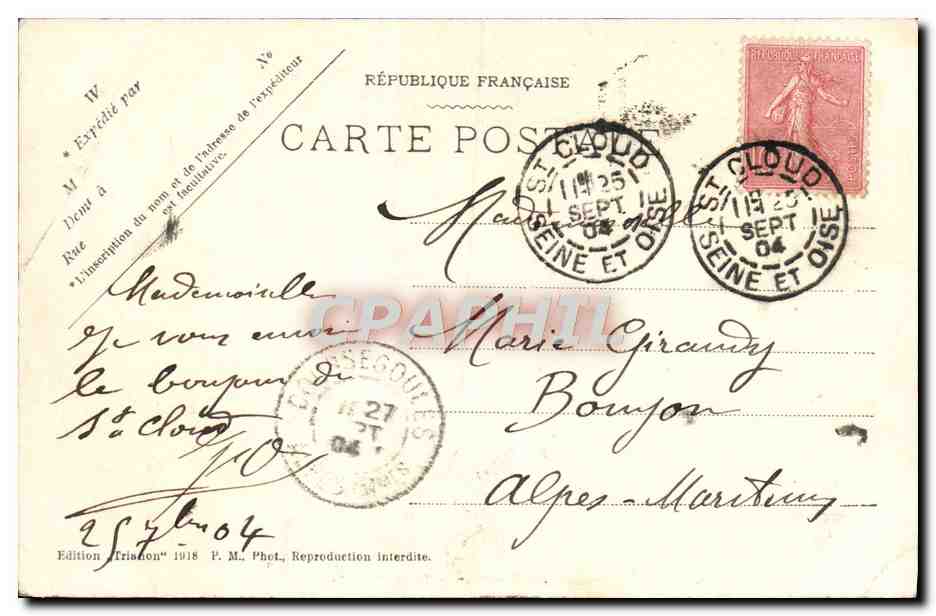 RÉPUBLIQUE FRANÇAISE
CARTE POSTALE
W No
* Expédié par
M
Dont à
Rue
*L'inscription du nom et de l'adresse de l'expéditeur
est facultative.
RÉPUBLIQUE FRANÇAISE
ST CLOUD
11 25
SEPT
04
SEINE ET OISE
ST CLOUD
11 25
SEPT
04
SEINE ET OISE
Mademoiselle
Marie Giraudy
Bouyon
Alpes-Maritimes
Mademoiselle
Je vous envoi
le bonjour de
St Cloud
25 7bre 04
27
PT
04
CPAPHIL
Edition „Trianon" 1918 P. M., Phot., Reproduction interdite.